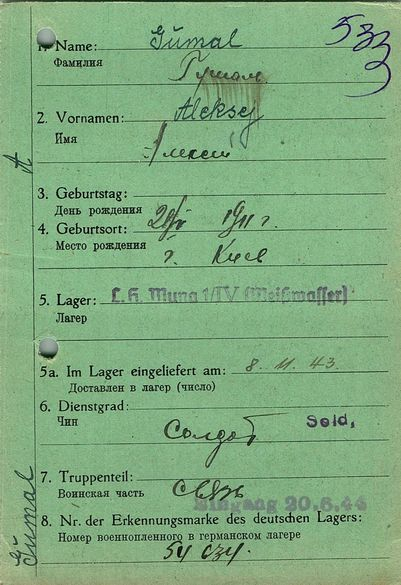 533
1. Name: Gümal
Фамилия
2. Vornamen: Aleksej
Имя Алексей
A
3. Geburtstag:
День рождения 1911 г.
4. Geburtsort:
Место рождения г. Киев
5. Lager: L. H. Muna 1/IV (Weißwasser)
Лагер
5a. Im Lager eingeliefert am: 8. 11. 43.
Доставлен в лагер (число)
6. Dienstgrad: Sold.
Чин Солдат
7. Truppenteil:
Воинская часть связь
Eingang 20.6.44
8. Nr. der Erkennungsmarke des deutschen Lagers:
Номер военнопленного в германском лагере
54 034.
Gümal